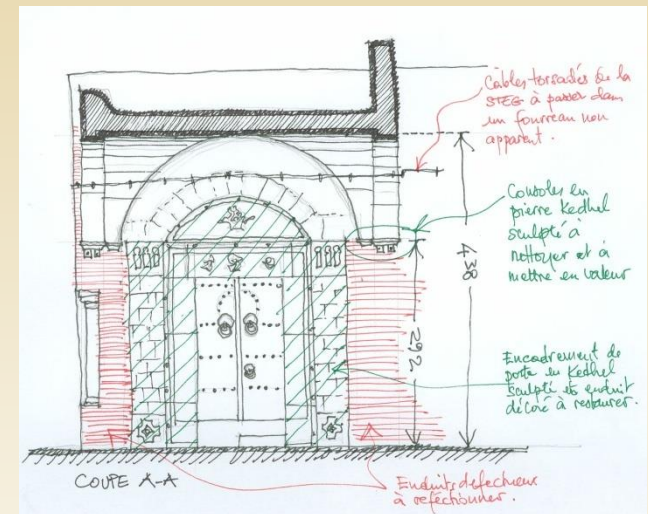 Câbles torsadés de la
STEG à passer dans
un fourreau non
apparent.
Consoles en
pierre Kedhel
sculpté à
nettoyer et à
mettre en valeur
438
292
Encadrement de
porte en Kedhel
sculpté et enduit
décoré à restaurer.
COUPE A-A
Enduits défectueux
à refectionner.